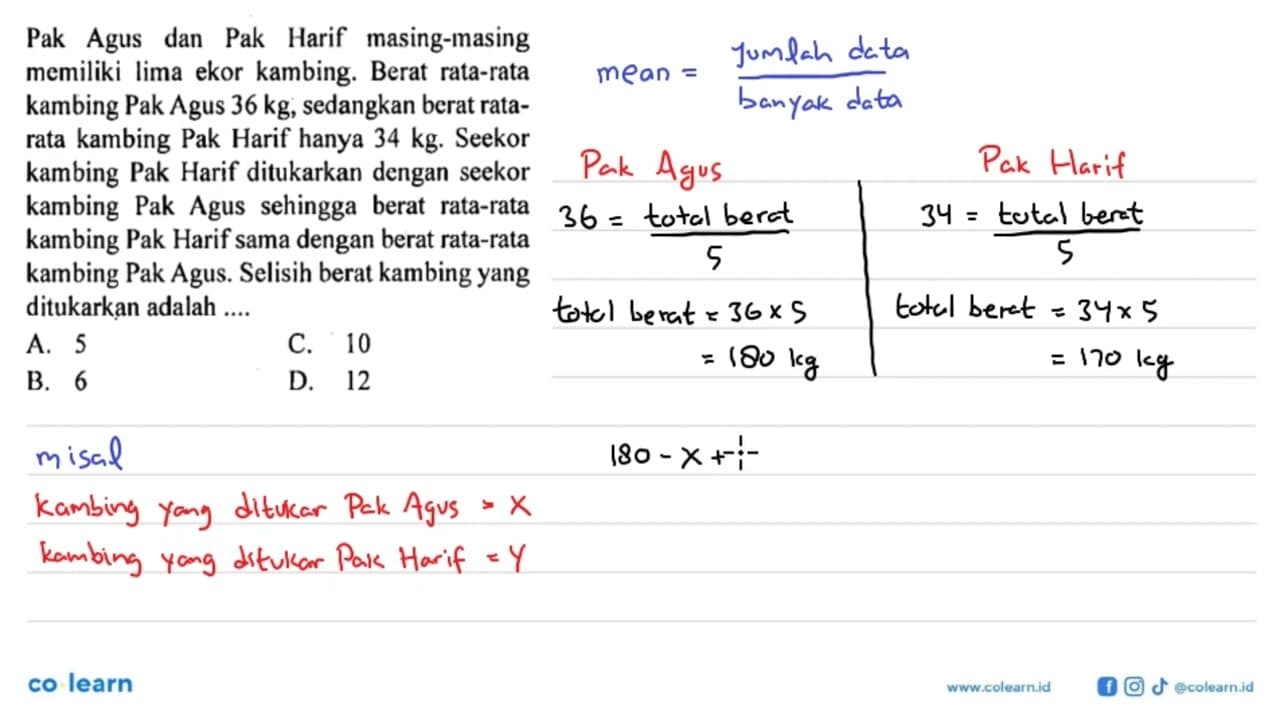 Pak Agus dan Pak Harif masing-masing
memiliki lima ekor kambing. Berat rata-rata
kambing Pak Agus 36 kg, sedangkan berat rata-
rata kambing Pak Harif hanya 34 kg. Seekor
kambing Pak Harif ditukarkan dengan seekor
kambing Pak Agus sehingga berat rata-rata
kambing Pak Harif sama dengan berat rata-rata
kambing Pak Agus. Selisih berat kambing yang
ditukarkan adalah ....
A. 5 C. 10
B. 6 D. 12
mean = jumlah data
banyak data
Pak Agus
36 = total berat
5
total berat = 36 x 5
= 180 kg
Pak Harif
34 = total berat
5
total berat = 34 x 5
= 170 kg
misal
Kambing yang ditukar Pak Agus = X
kambing yang ditukar Pak Harif = Y
180 - X +
co learn
www.colearn.id
@colearn.id